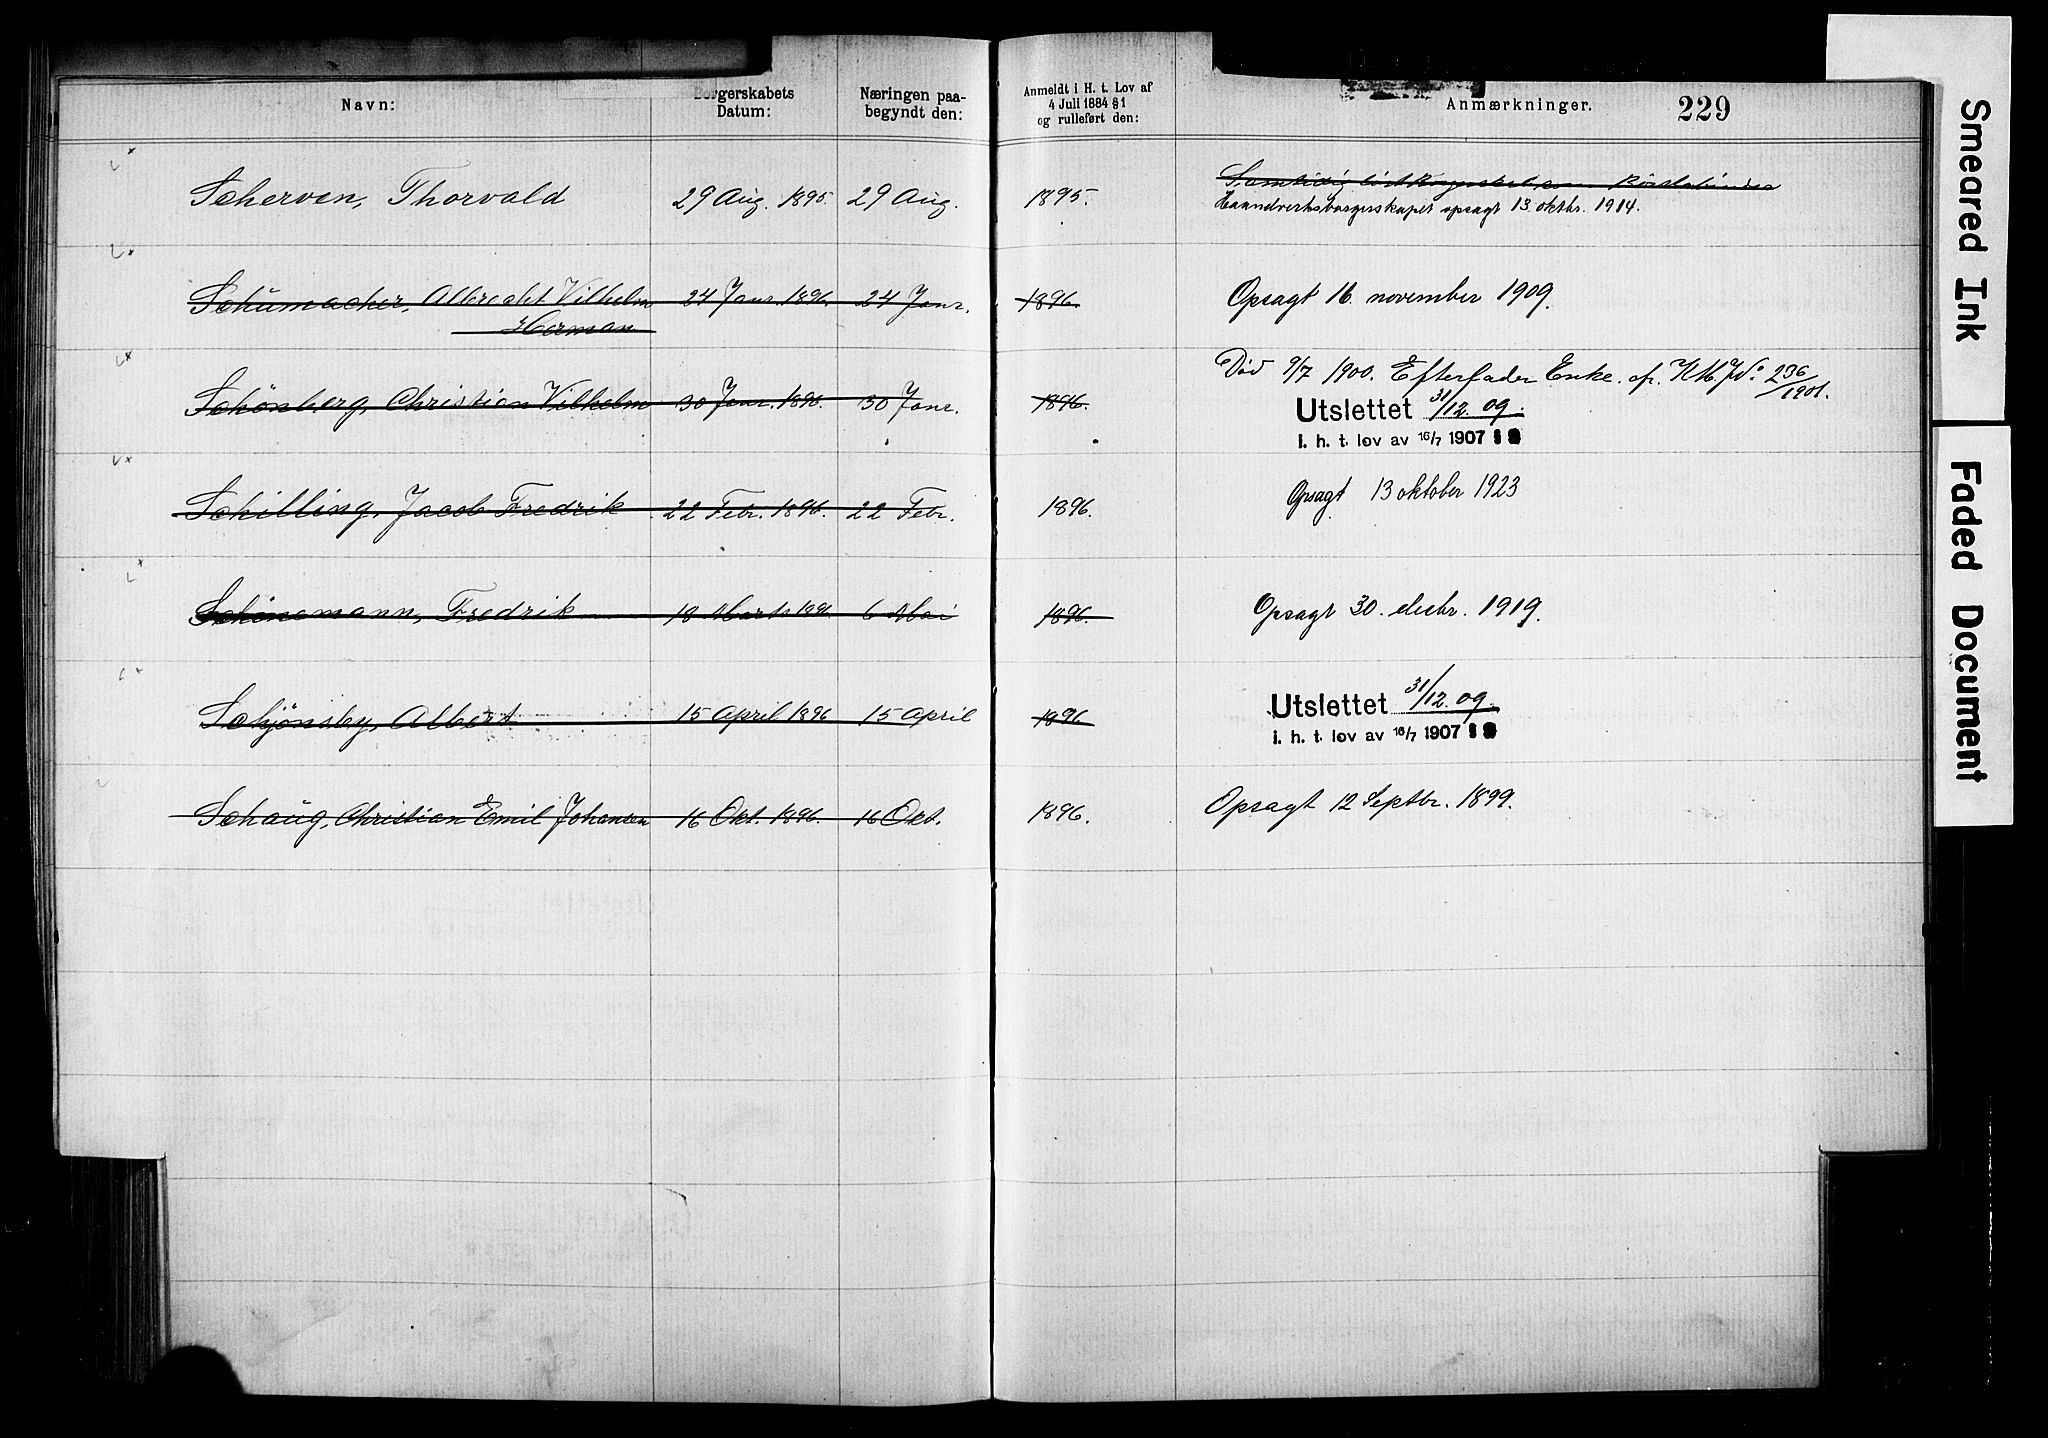 Navn:
Borgerskabets
Datum:
Næringen paa-
begyndt den:
Anmeldt i H. t. Lov af
4 Juli 1884 §1
og rulleført den:
Anmærkninger.
229
Scherven, Thorvald 29 Aug. 1895. 29 Aug. 1895.
Samtidig löst Borgerskab som Börstebinder
Haandverksborgerskapet opsagt 13. oktbr. 1914.
Schumacher, Albrecht Vilhelm 24 Janr. 1896. 24 Janr. 1896. Opsagt 16. november 1909.
Herman
Död 9/7 1900. Efterlader Enke. cf. 236/1901.
Schönberg, Christian Vilhelm 30 Janr. 1896. 30 Janr. 1896.
Utslettet 31/12. 09.
i. h. t. lov av 16/7 1907
Schilling, Jacob Fredrik 22 Febr. 1896. 22 Febr. 1896. Opsagt 13 oktober 1923
Schönemann, Fredrik 18 Marts 1896 6 Mai 1896. Opsagt 30. desbr. 1919.
Schjönsby, Albert 15 April 1896 15 April 1896
Utslettet 31/12. 09.
i. h. t. lov av 16/7 1907
Schaug, Christian Emil Johansen 16 Okt. 1896. 16 Okt. 1896. Opsagt 12 Septbr. 1899.
Smeared Ink
Faded Document